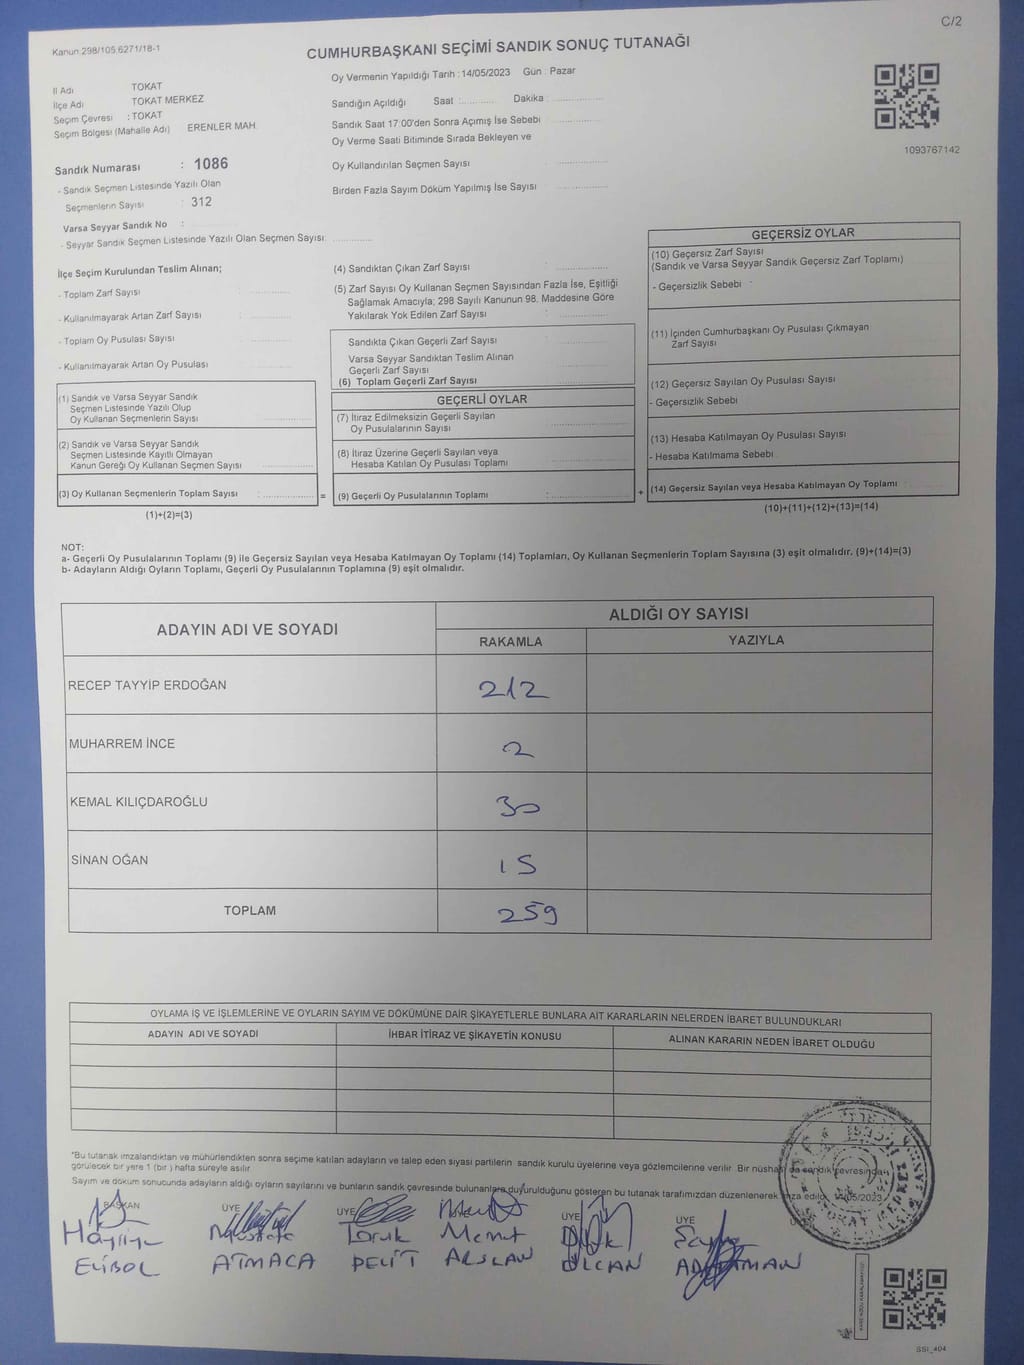 C/2
Kanun 298/105,6271/18-1
CUMHURBAŞKANI SEÇİMİ SANDIK SONUÇ TUTANAĞI
Oy Vermenin Yapıldığı Tarih : 14/05/2023 Gün : Pazar
İl Adı TOKAT
İlçe Adı TOKAT MERKEZ
Seçim Çevresi : TOKAT
Seçim Bölgesi (Mahalle Adı) ERENLER MAH.
Sandığın Açıldığı Saat :........... Dakika :...............
Sandık Saat 17:00'den Sonra Açımış İse Sebebi
Oy Verme Saati Bitiminde Sırada Bekleyen ve
Oy Kullandırılan Seçmen Sayısı
Birden Fazla Sayım Döküm Yapılmış İse Sayısı
1093767142
Sandık Numarası : 1086
- Sandık Seçmen Listesinde Yazılı Olan
Seçmenlerin Sayısı : 312
Varsa Seyyar Sandık No :
- Seyyar Sandık Seçmen Listesinde Yazılı Olan Seçmen Sayısı: ............
İlçe Seçim Kurulundan Teslim Alınan;
- Toplam Zarf Sayısı
- Kullanılmayarak Artan Zarf Sayısı
- Toplam Oy Pusulası Sayısı
- Kullanılmayarak Artan Oy Pusulası
(1) Sandık ve Varsa Seyyar Sandık
Seçmen Listesinde Yazılı Olup
Oy Kullanan Seçmenlerin Sayısı
(2) Sandık ve Varsa Seyyar Sandık
Seçmen Listesinde Kayıtlı Olmayan
Kanun Gereği Oy Kullanan Seçmen Sayısı
(3) Oy Kullanan Seçmenlerin Toplam Sayısı : ............... =
(1)+(2)=(3)
(4) Sandıktan Çıkan Zarf Sayısı
(5) Zarf Sayısı Oy Kullanan Seçmen Sayısından Fazla İse, Eşitliği
Sağlamak Amacıyla; 298 Sayılı Kanunun 98. Maddesine Göre
Yakılarak Yok Edilen Zarf Sayısı
Sandıkta Çıkan Geçerli Zarf Sayısı
Varsa Seyyar Sandıktan Teslim Alınan
Geçerli Zarf Sayısı
(6) Toplam Geçerli Zarf Sayısı
GEÇERLİ OYLAR
(7) İtiraz Edilmeksizin Geçerli Sayılan
Oy Pusulalarının Sayısı
(8) İtiraz Üzerine Geçerli Sayılan veya
Hesaba Katılan Oy Pusulası Toplamı
(9) Geçerli Oy Pusulalarının Toplamı : ............... +
GEÇERSİZ OYLAR
(10) Geçersiz Zarf Sayısı
(Sandık ve Varsa Seyyar Sandık Geçersiz Zarf Toplamı)
- Geçersizlik Sebebi :
(11) İçinden Cumhurbaşkanı Oy Pusulası Çıkmayan
Zarf Sayısı
(12) Geçersiz Sayılan Oy Pusulası Sayısı
- Geçersizlik Sebebi
(13) Hesaba Katılmayan Oy Pusulası Sayısı
- Hesaba Katılmama Sebebi
(14) Geçersiz Sayılan veya Hesaba Katılmayan Oy Toplamı
(10)+(11)+(12)+(13)=(14)
NOT:
a- Geçerli Oy Pusulalarının Toplamı (9) ile Geçersiz Sayılan veya Hesaba Katılmayan Oy Toplamı (14) Toplamları, Oy Kullanan Seçmenlerin Toplam Sayısına (3) eşit olmalıdır. (9)+(14)=(3)
b- Adayların Aldığı Oyların Toplamı, Geçerli Oy Pusulalarının Toplamına (9) eşit olmalıdır.
ADAYIN ADI VE SOYADI
ALDIĞI OY SAYISI
RAKAMLA YAZIYLA
RECEP TAYYİP ERDOĞAN 212
MUHARREM İNCE 2
KEMAL KILIÇDAROĞLU 30
SİNAN OĞAN 15
TOPLAM 259
OYLAMA İŞ VE İŞLEMLERİNE VE OYLARIN SAYIM VE DÖKÜMÜNE DAİR ŞİKAYETLERLE BUNLARA AİT KARARLARIN NELERDEN İBARET BULUNDUKLARI
ADAYIN ADI VE SOYADI İHBAR İTİRAZ VE ŞİKAYETİN KONUSU ALINAN KARARIN NEDEN İBARET OLDUĞU
"Bu tutanak imzalandıktan ve mühürlendikten sonra seçime katılan adayların ve talep eden siyasi partilerin sandık kurulu üyelerine veya gözlemcilerine verilir. Bir nüshası da sandık çevresinde
görülecek bir yere 1 (bir) hafta süreyle asılır.
Sayım ve döküm sonucunda adayların aldığı oyların sayılarını ve bunların sandık çevresinde bulunanlara duyurulduğunu gösteren bu tutanak tarafımızdan düzenlenerek imza edildi. 14/05/2023
BAŞKAN ÜYE ÜYE ÜYE ÜYE
Mustafa Faruk Memet
ELİBOL ATMACA PELİT ARSLAN OLCAN ADIYAMAN
SSİ_404